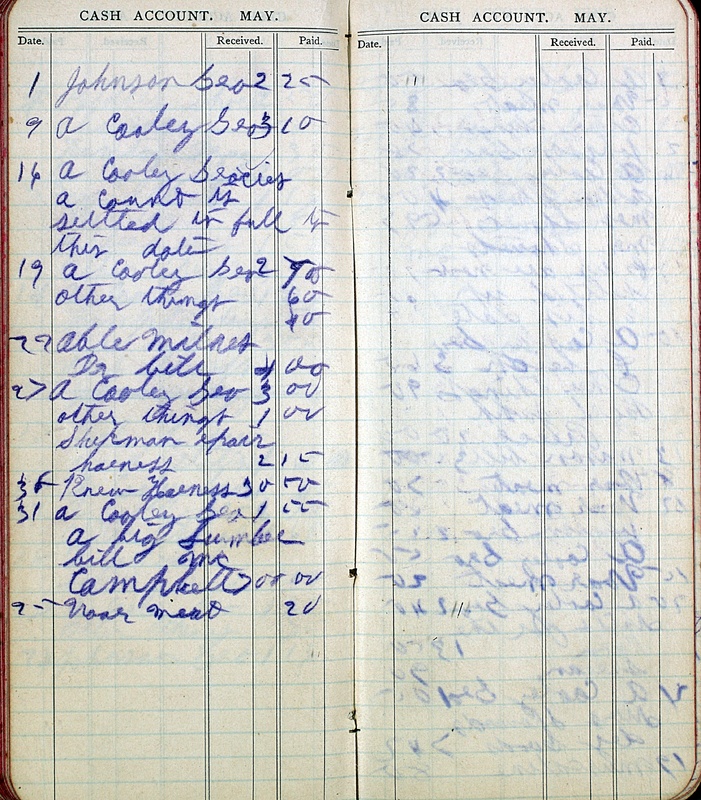 CASH ACCOUNT. MAY.
Date. Received. Paid.
1 Johnson Gro 2 25
9 A Cooley Gro 3 10
14 A Cooley Grocies
a connt is
settled in full to
this date
19 A Cooley Gro 2 90
other things 60
40
22 Able
Dr bill 4 00
27 A Cooley Gro 3 00
other things 1 00
Shurman repair
harness 2 15
new Harness 30 50
31 A Cooley Gro 1 55
a big Lumber
bill Mr
Campbell 00 00
25 meat 20
CASH ACCOUNT. MAY.
Date. Received. Paid.